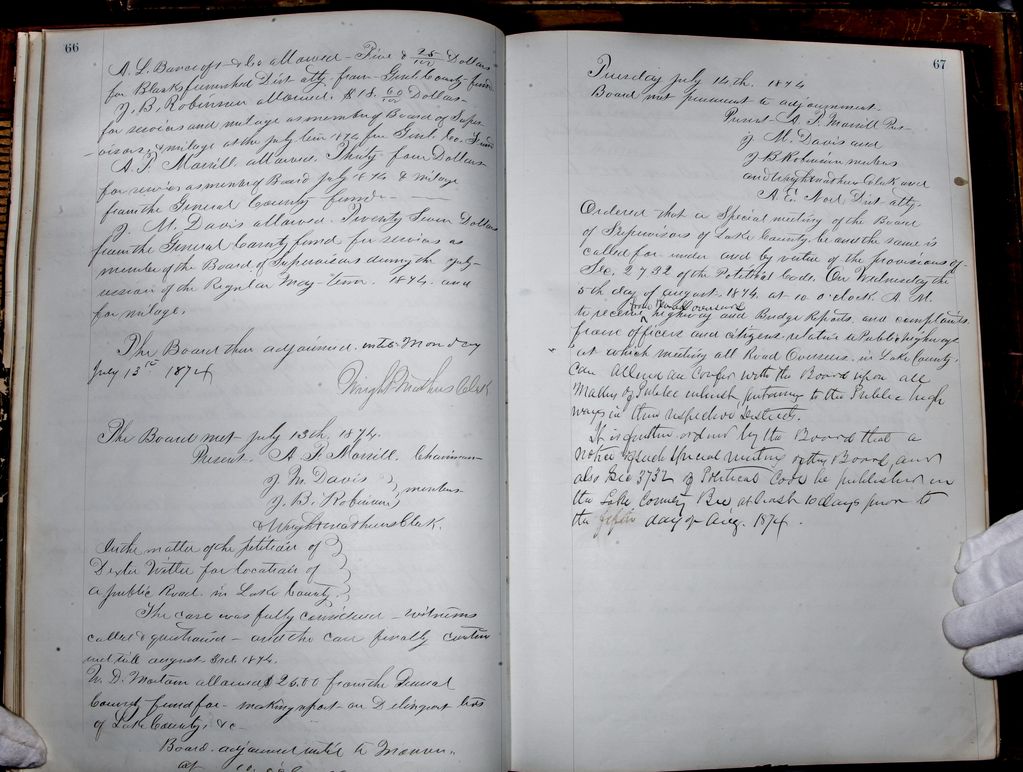 66
A. L. Bancroft & Co allowed - Five & 25/100 Dollars
for Blanks furnished Dist atty. from Genl. County fund
J. B. Robinson allowed. $18. 60/100 Dollars
for services and milage as member of Board of Super
visors, & milage at the July term 1874 for Genl. Co. Fund
A. P. Morrill allowed. Thirty four Dollars
for services as member of Board July 1874 & milage
from the General County fund
J. M. Davis allowed. Twenty Seven Dollars
from the General County fund for services as
member of the Board of Supervisors during the July
session of the Regular May term. 1874. and
for milage.
The Board then adjourned until Monday
July 13th 1874
Wright Mathews Clerk
The Board met July 13th. 1874.
Present. A. P. Morrill. Chairman
J. M. Davis
J. B. Robinson, members
& Wright Mathews Clerk.
In the matter of the petition of
Dexter Witter for location of
a public Road in Lake County
The case was fully considered - witnesses
called & - and the case finally contin
ued till august 3rd. 1874.
W. D. allowed $25.00 from the General
County fund for - making report on Delinquent
of Lake County, &c
Board adjourned until to
at
67
Tuesday July 14th. 1874
Board met pursuant to adjournment.
Present A. P. Morrill Pres
J. M. Davis and
J B Robinson members
and Wright Mathews Clerk and
A. E. Noel Dist atty.
Ordered that a Special meeting of the Board
of Supervisors of Lake County be and the same is
called for under and by virtue of the provisions of
Sec. 2732 of the Political Code. On Wednesday the
5th day of august. 1874. at 10 o'clock A. M.
from Road Overseers
to receive highway and Bridge Reports. and complaints
from officers and citizens relative to Public highways
at which meeting all Road Overseers. in Lake County.
can attend and confer with the Board upon all
Matters of Public interest pertaining to the Public high
ways in their respective Districts.
It is further ordered by the Board that a
notice of such special meeting of the Board, and
also Sec 3732 of Political Code be published in
the Lake County Bee at least 10 days prior to
the fifth day of Aug. 1874.